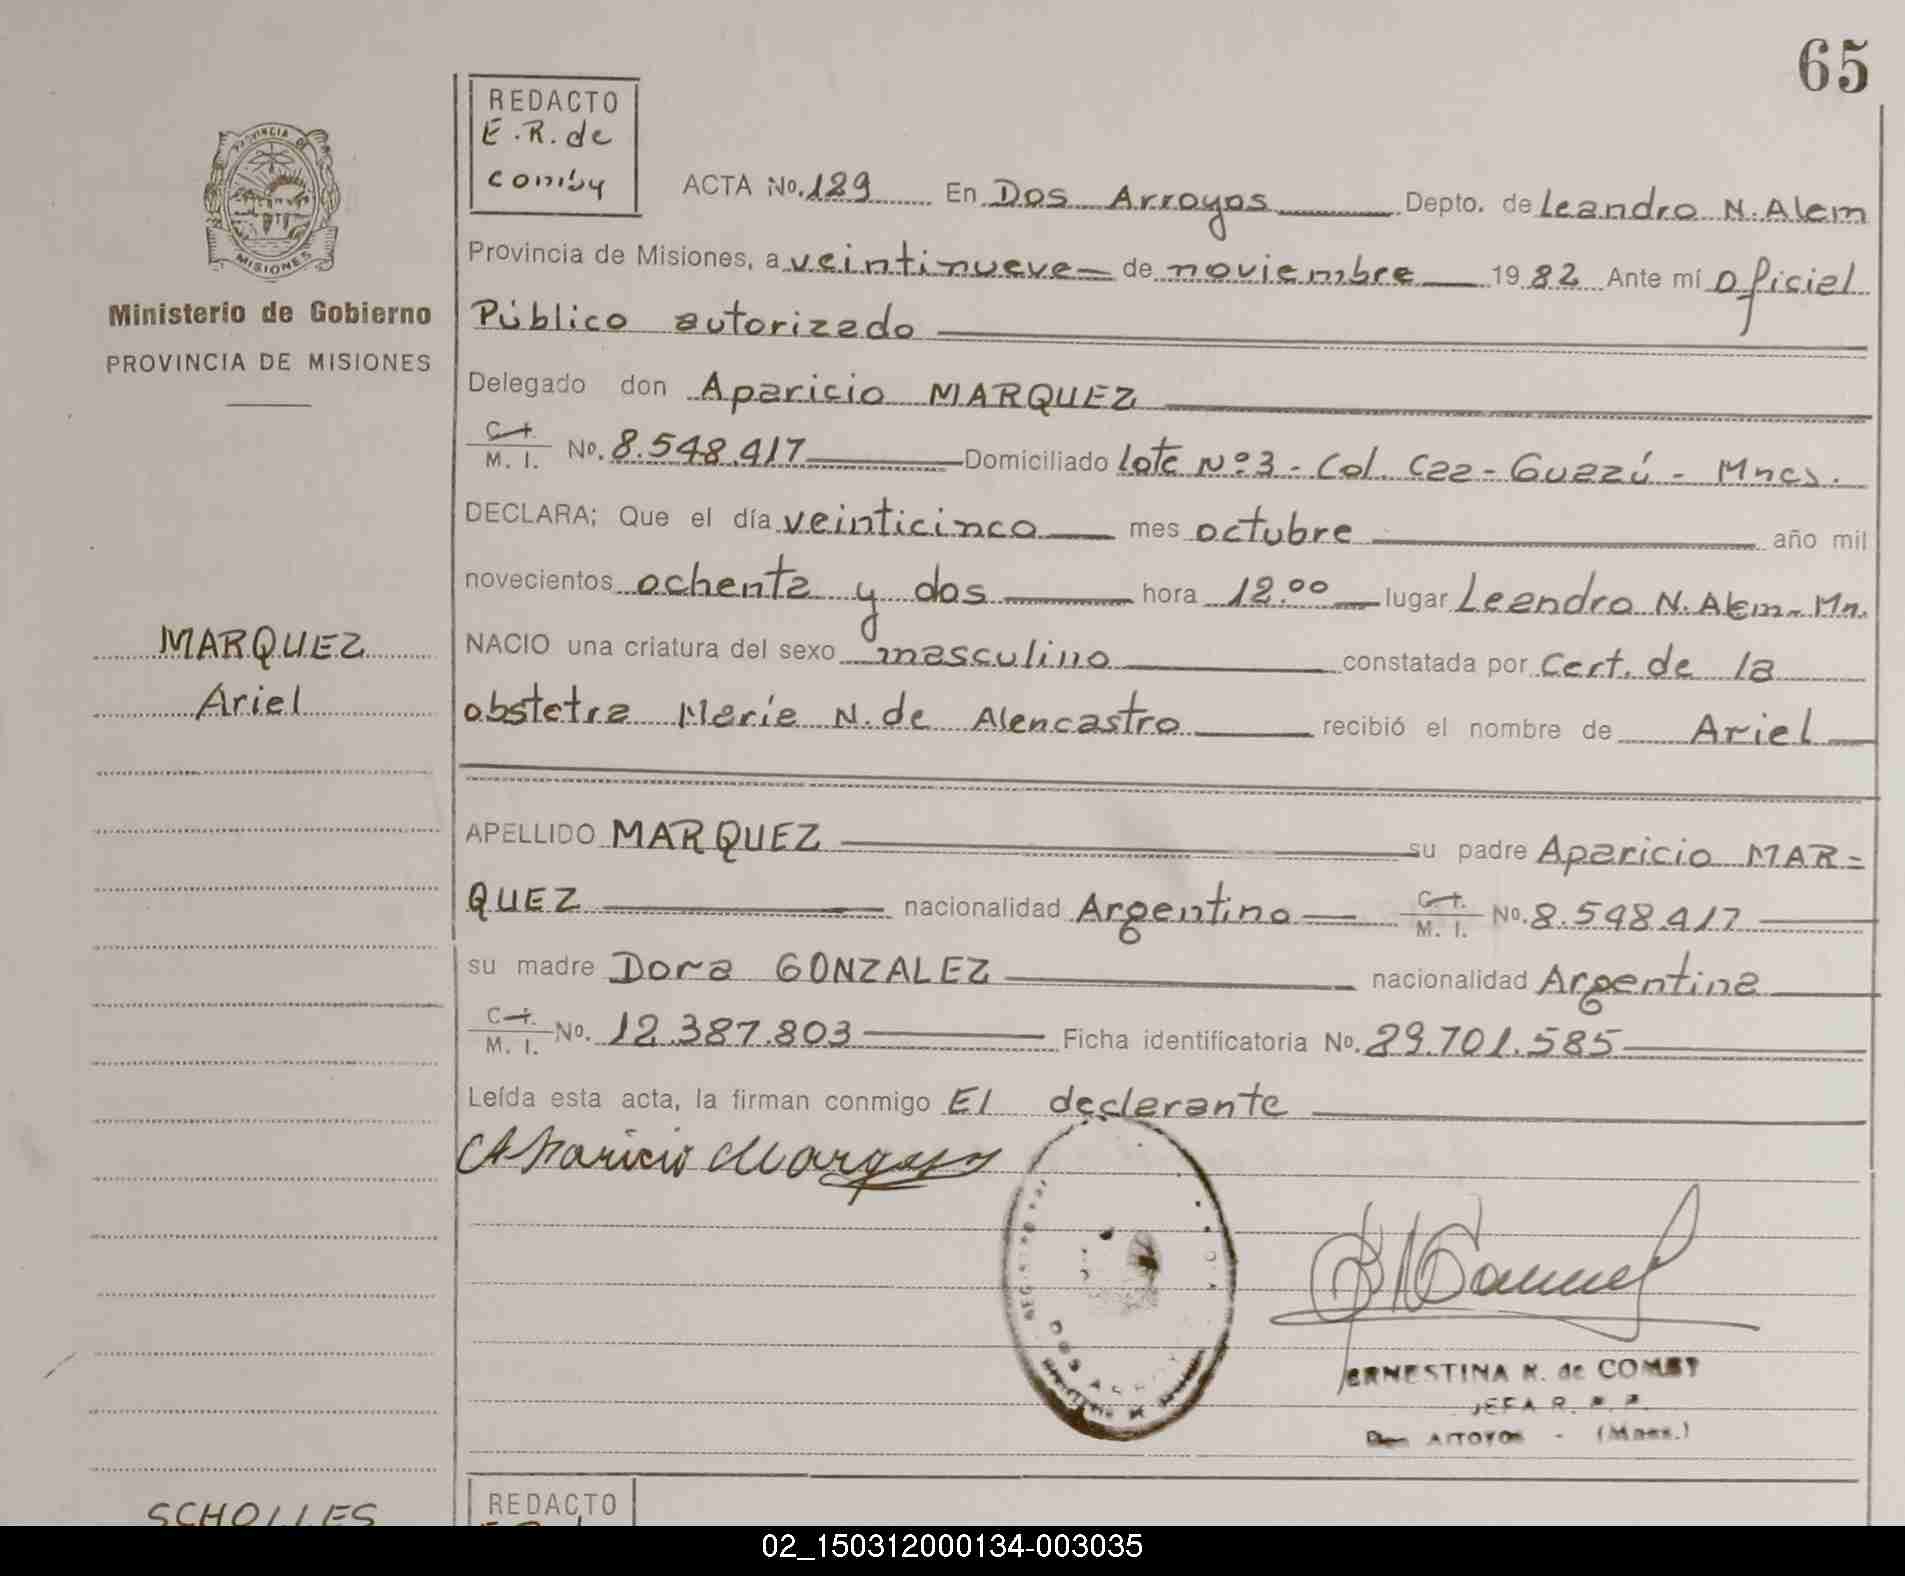 65
REDACTO
E.R. de
comby
PROVINCIA DE
MISIONES
Ministerio de Gobierno
PROVINCIA DE MISIONES
ACTA No. 129 En Dos Arroyos Depto. de Leandro N. Alem
Provincia de Misiones, a veintinueve de noviembre 1982 Ante mí Oficial
Público autorizado
Delegado don Aparicio MARQUEZ
C.I. M. I. No. 8.548.417 Domiciliado lote Nº 3 - Col. Caa-Guazú - Mnes.
DECLARA; Que el día veinticinco mes octubre año mil
novecientos ochenta y dos hora 12.00 lugar Leandro N. Alem - Mn.
MARQUEZ
Ariel
NACIO una criatura del sexo masculino constatada por Cert. de la
obstetra Maria N. de Alencastro recibió el nombre de Ariel
APELLIDO MARQUEZ su padre Aparicio MAR=
QUEZ nacionalidad Argentino C.I. M. I. No. 8.548.417
su madre Dora GONZALEZ nacionalidad Argentina
C.I. M. I. No. 12.387.803 Ficha identificatoria No. 29.701.585
Leída esta acta, la firman conmigo El declarante
Aparicio Marquez
ERNESTINA R. de COMBY
JEFA R.
Dos Arroyos - (Mnes.)
SCHOLLES
REDACTO
02_150312000134-003035